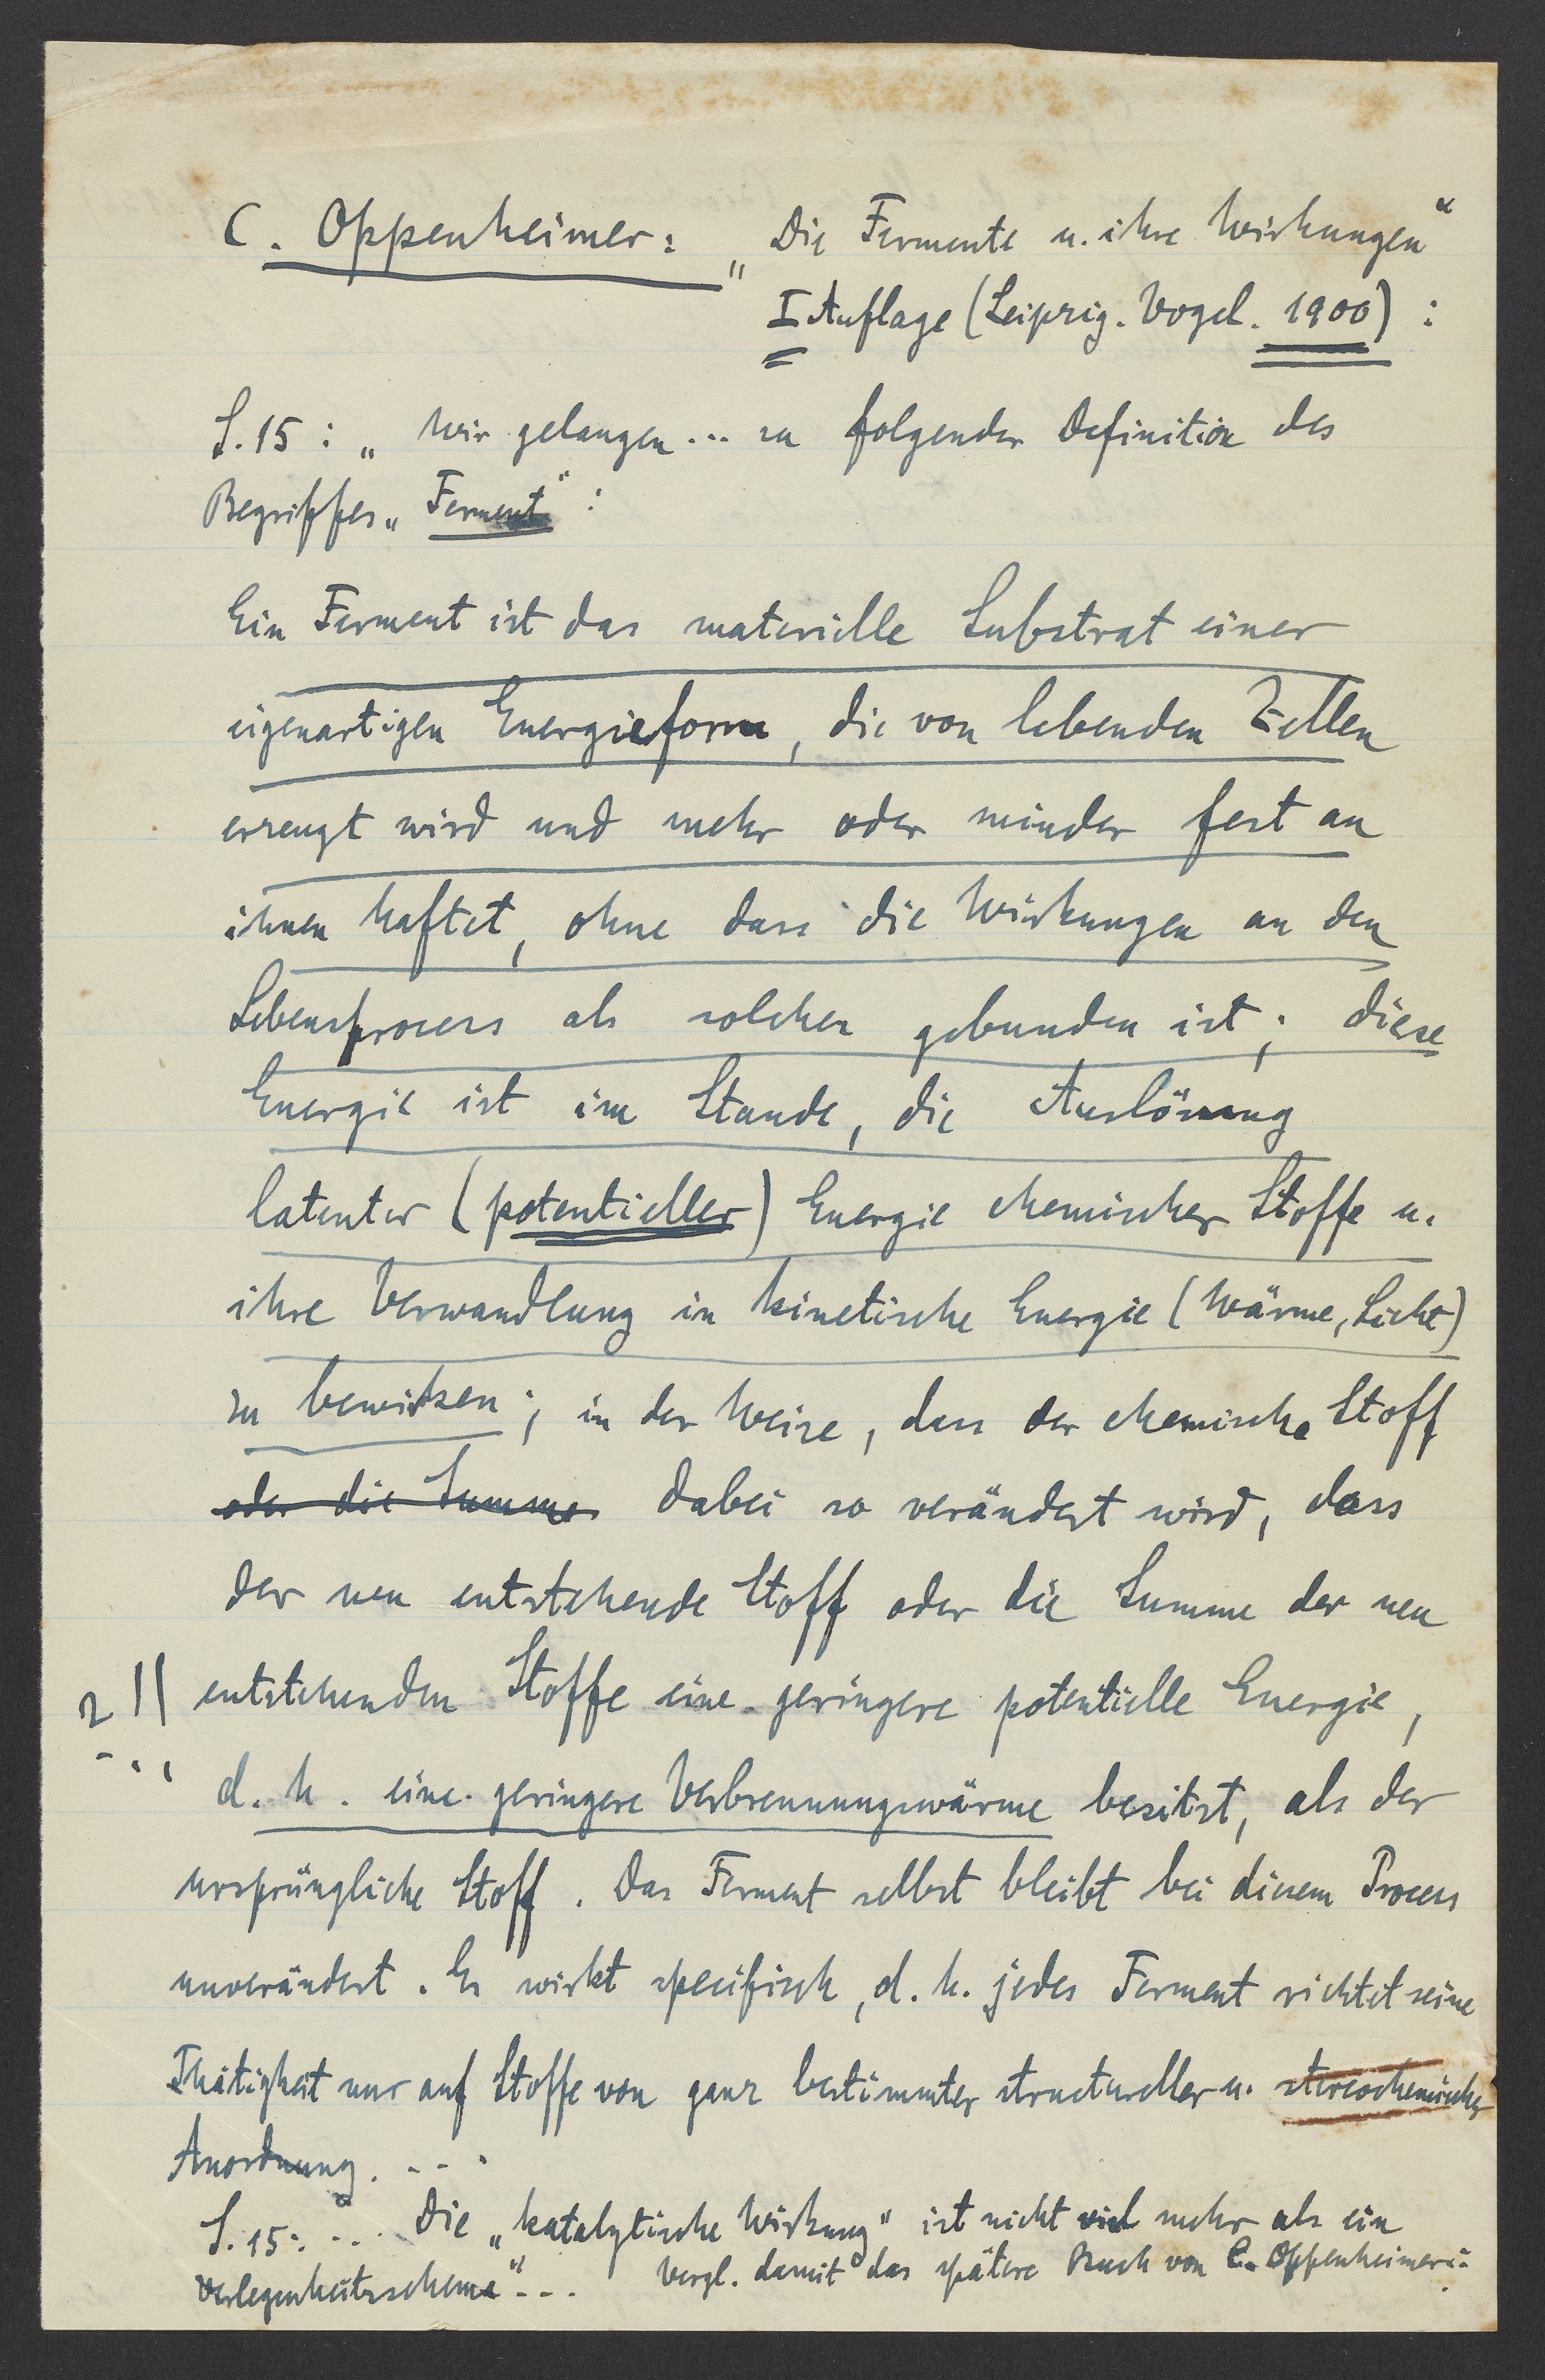 C. Oppenheimer: „Die Fermente u. ihre Wirkungen“
I Auflage (Leipzig. Vogel. 1900) :
S. 15 : „ Wir gelangen ... zu folgender Definition des
Begriffes „Ferment“ :
Ein Ferment ist das materielle Substrat einer
eigenartigen Energieform, die von lebenden Zellen
erzeugt wird und mehr oder minder fest an
ihnen haftet, ohne dass die Wirkungen an den
Lebensprocess als solchen gebunden ist; diese
Energie ist im Stande, die Auslösung
latenter (potentieller) Energie chemischer Stoffe u.
ihre Verwandlung in kinetische Energie (Wärme, Licht)
zu bewirken; in der Weise, dass der chemische Stoff
oder die Summe dabei so verändert wird, dass
der neu entstehende Stoff oder die Summe der neu
entstehenden Stoffe eine geringere potentielle Energie,
d. h. eine geringere Verbrennungswärme besitzt, als der
ursprüngliche Stoff. Das Ferment selbst bleibt bei diesem Process
unverändert. Es wirkt specifisch, d. h. jedes Ferment richtet seine
Thätigkeit nur auf Stoffe von ganz bestimmter structureller u. stereochemischer
Anordnung. - - -
S. 15: ... Die „katalytische Wirkung“ ist nicht viel mehr als ein
Verlegenheitsschema“ - - - Vergl. damit das spätere Buch von C. Oppenheimer: